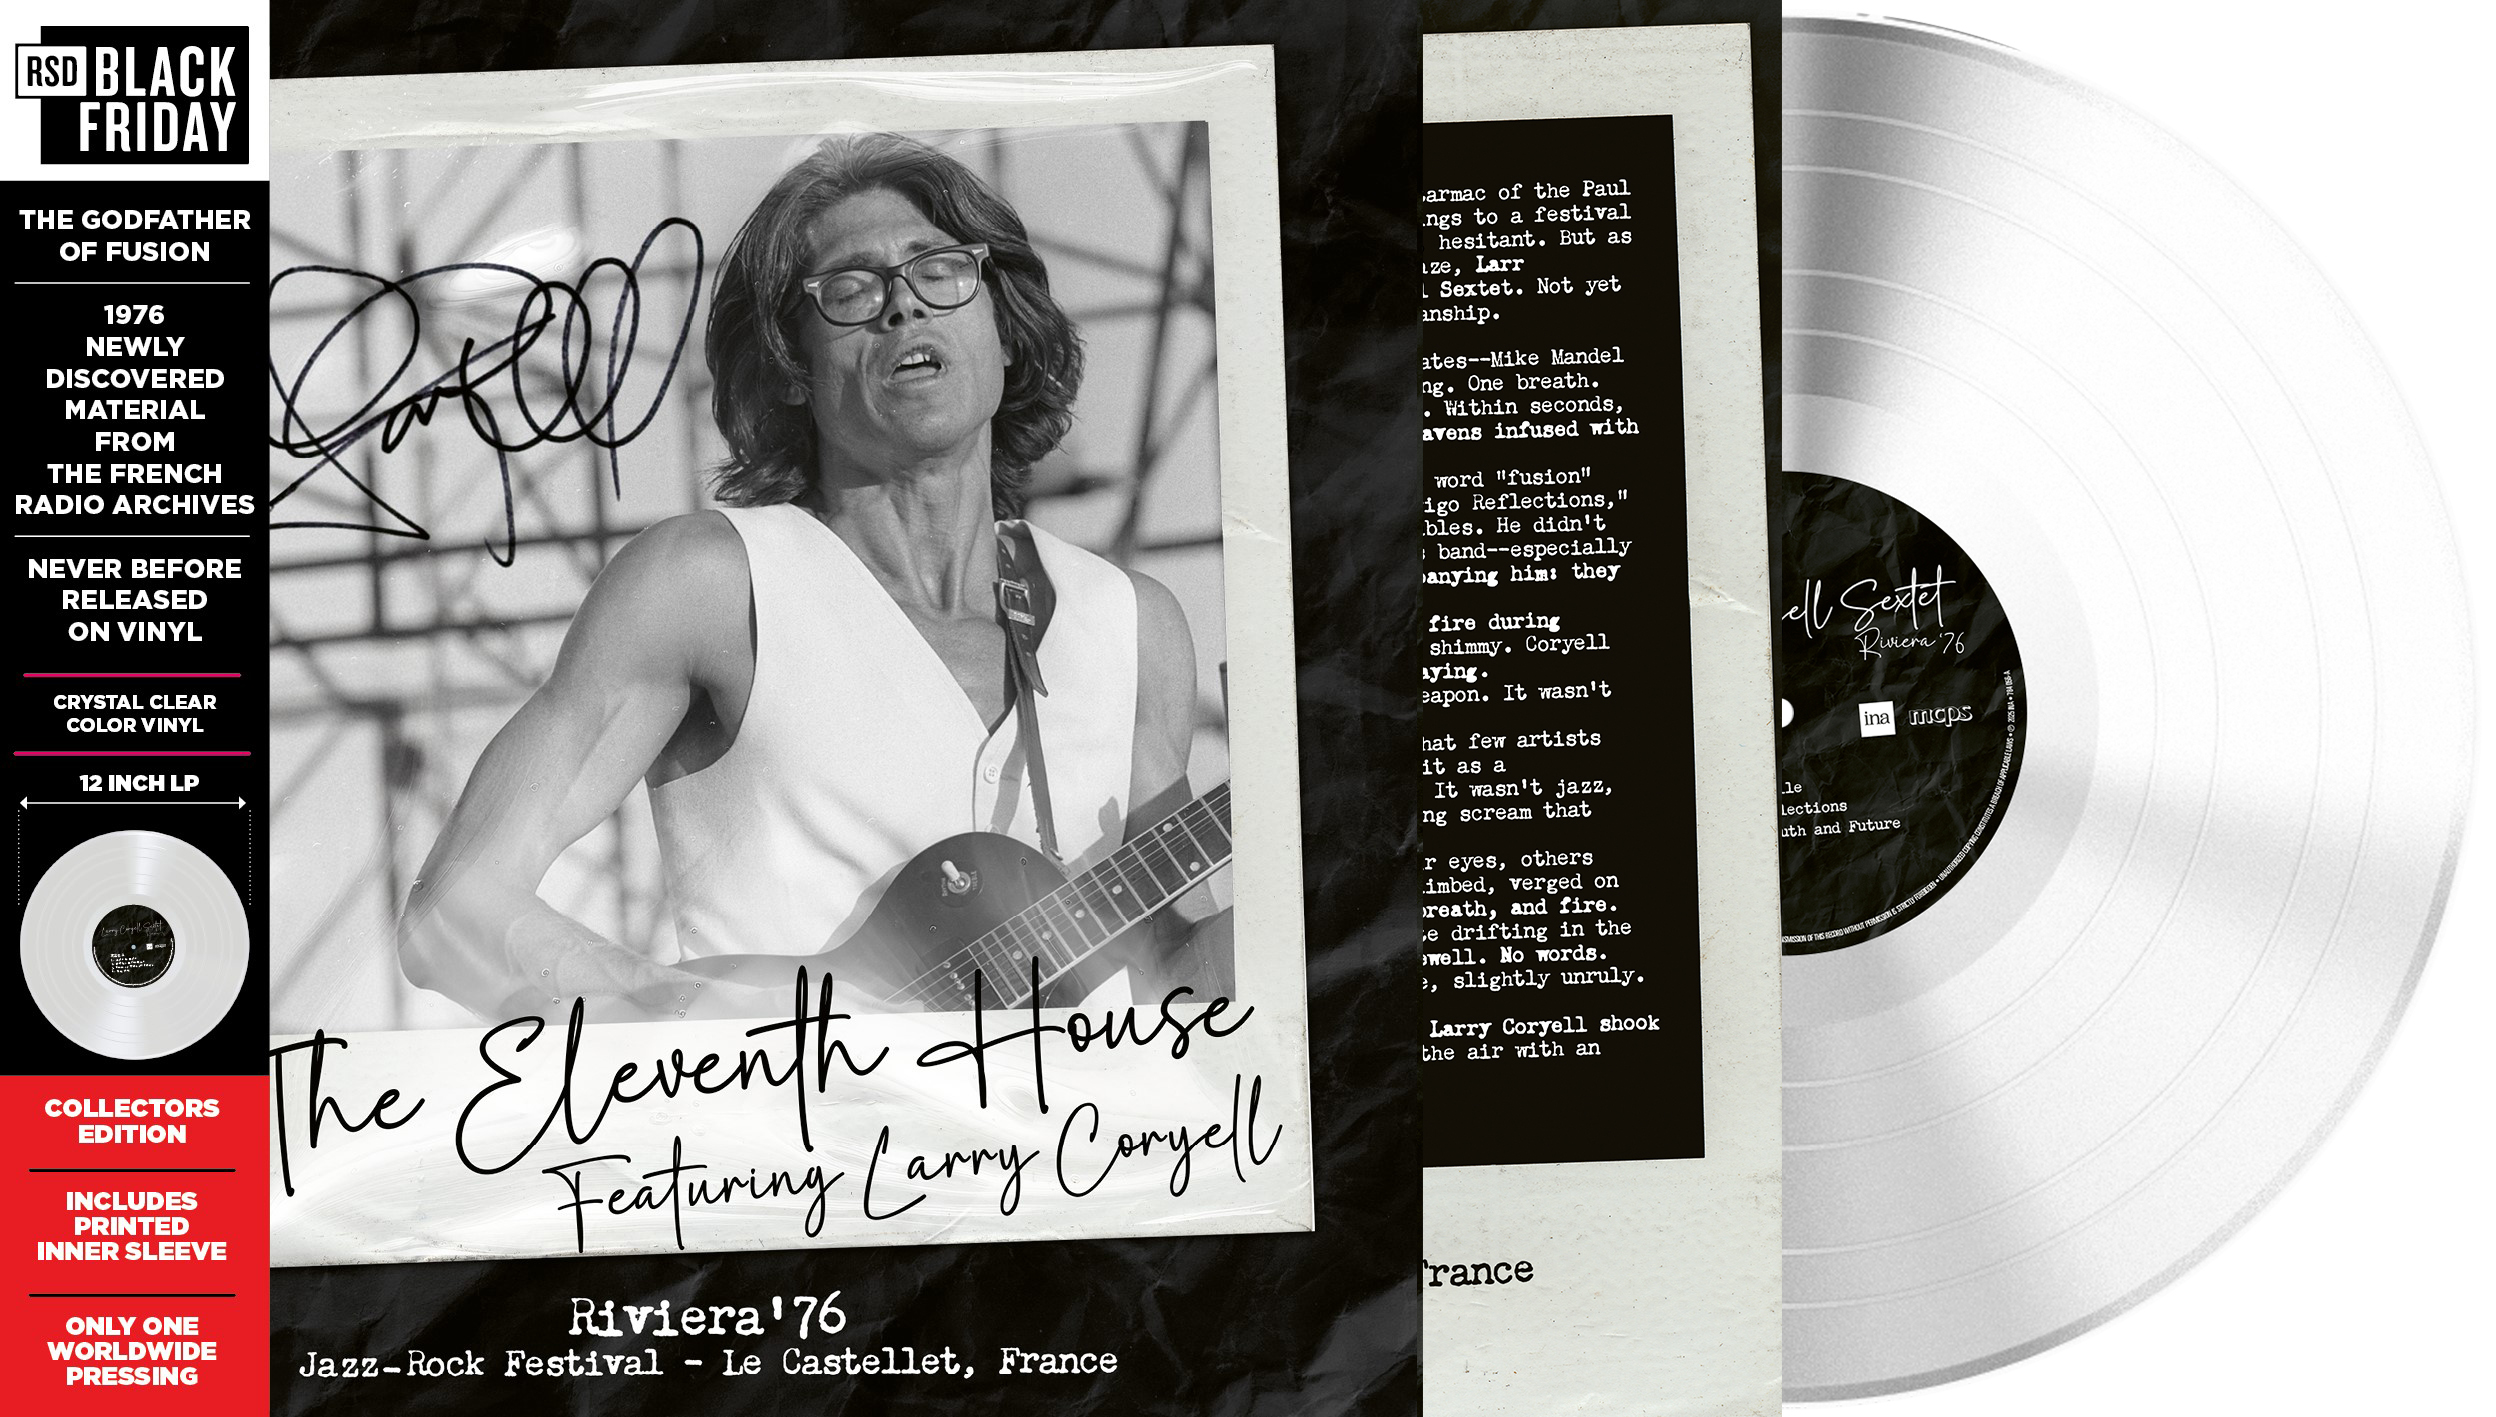 RSD BLACK
FRIDAY
THE GODFATHER
OF FUSION
1976
NEWLY
DISCOVERED
MATERIAL
FROM
THE FRENCH
RADIO ARCHIVES
NEVER BEFORE
RELEASED
ON VINYL
CRYSTAL CLEAR
COLOR VINYL
12 INCH LP
Larry Coryell Sextet
COLLECTORS
EDITION
INCLUDES
PRINTED
INNER SLEEVE
ONLY ONE
WORLDWIDE
PRESSING
Coryell
The Eleventh House
Featuring Larry Coryell
Riviera'76
Jazz-Rock Festival - Le Castellet, France
armac of the Paul
ngs to a festival
hesitant. But as
ze, Larr
l Sextet. Not yet
anship.
ates--Mike Mandel
ng. One breath.
. Within seconds,
avens infused with
word "fusion"
igo Reflections,"
bles. He didn't
s band--especially
panying him: they
fire during
shimmy. Coryell
aying.
eapon. It wasn't
hat few artists
it as a
It wasn't jazz,
ng scream that
r eyes, others
imbed, verged on
breath, and fire.
te drifting in the
ewell. No words.
e, slightly unruly.
Larry Coryell shook
the air with an
France
ell Sextet
Riviera '76
ina mcps
le
lections
uth and Future